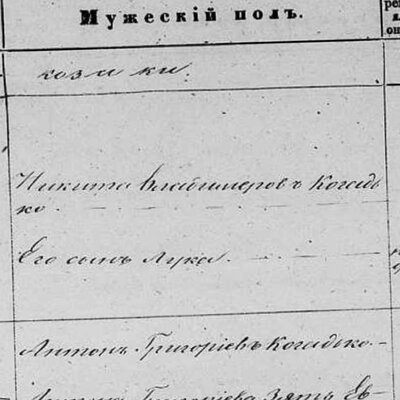 Мужескій полъ.
козаки
Никита Владимеровъ Когадь
ко.
Его сынъ Лука.
Антонъ Григоріевъ Когадько.
Григоріева Зять Ев-